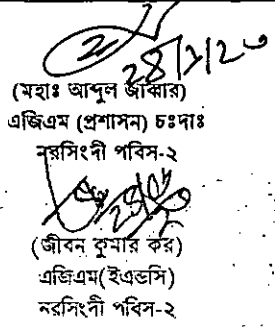 (মহাঃ আব্দুল জাব্বার)
এজিএম (প্রশাসন) চঃদাঃ
নরসিংদী পবিস-২
(জীবন কুমার কর)
এজিএম(ইএন্ডসি)
নরসিংদী পবিস-২